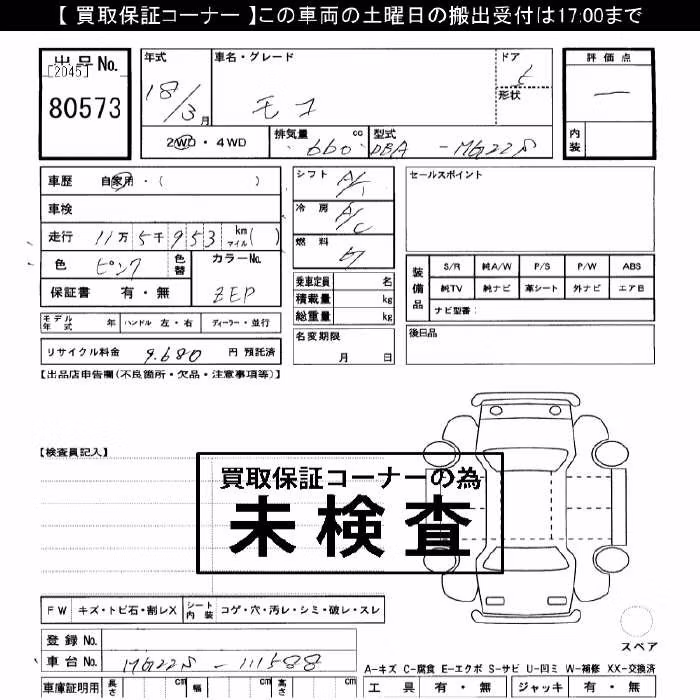 【 買取保証コーナー 】この車両の土曜日の搬出受付は17:00まで
出品No.
[2045]
80573
年式
18/3月
車名・グレード
モコ
ドア
形状
2WD・4WD
排気量
660 cc
型式
DBA - MG22S
評価点
内装
車歴 自家用・( )
車検
走行 11万 5千 953 km マイル ( )
色 ピンク
色替
カラーNo.
ZEP
保証書 有・無
モデル年式 年 ハンドル 左・右 ディーラー・並行
リサイクル料金 9.680 円 預託済
シフト A/T
冷房 A/C
燃料
乗車定員 名
積載量 kg
総重量 kg
名変期限
月 日
セールスポイント
装備品
S/R 純A/W P/S P/W ABS
純TV 純ナビ 革シート 外ナビ エアB
ナビ型番:
後日品
【出品店申告欄(不良箇所・欠品・注意事項等)】
【検査員記入】
買取保証コーナーの為
未検査
FW キズ・トビ石・割レX
シート内装 コゲ・穴・汚レ・シミ・破レ・スレ
登録No.
車台No. MG22S - 111588
車庫証明用 長さ cm 幅 cm 高さ cm
スペア
A-キズ C-腐食 E-エクボ S-サビ U-凹ミ W-補修 XX-交換済
工具 有・無 ジャッキ 有・無